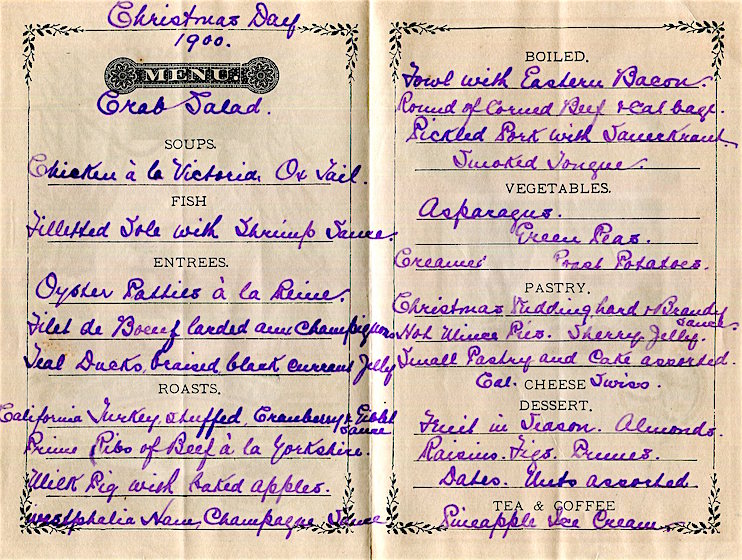 Christmas Day
1900.
MENU.
Crab Salad.
SOUPS.
Chicken à la Victoria. Ox Tail.
FISH
Filletted Sole with Shrimp Sauce.
ENTREES.
Oyster Patties à la Reine.
Filet de Boeuf larded aux Champignons
Teal Ducks, braised black currant Jelly
ROASTS.
California Turkey stuffed, Cranberry & Giblet
Sauce
Prime Ribs of Beef à la Yorkshire.
Milk Pig with baked apples.
Westphalia Ham, Champagne Sauce
BOILED.
Fowl with Eastern Bacon.
Round of Corned Beef & Cabbage.
Pickled Pork with Sauerkraut.
Smoked Tongue.
VEGETABLES.
Asparagus.
Green Peas.
Creamed Roast Potatoes.
PASTRY.
Christmas Pudding hard & Brandy
Sauce.
Hot Mince Pies. Sherry Jelly.
Small Pastry and Cake assorted.
Cal. CHEESE Swiss.
DESSERT.
Fruit in Season. Almonds.
Raisins. Figs. Prunes.
Dates. Nuts assorted
TEA & COFFEE
Pineapple Ice Cream.